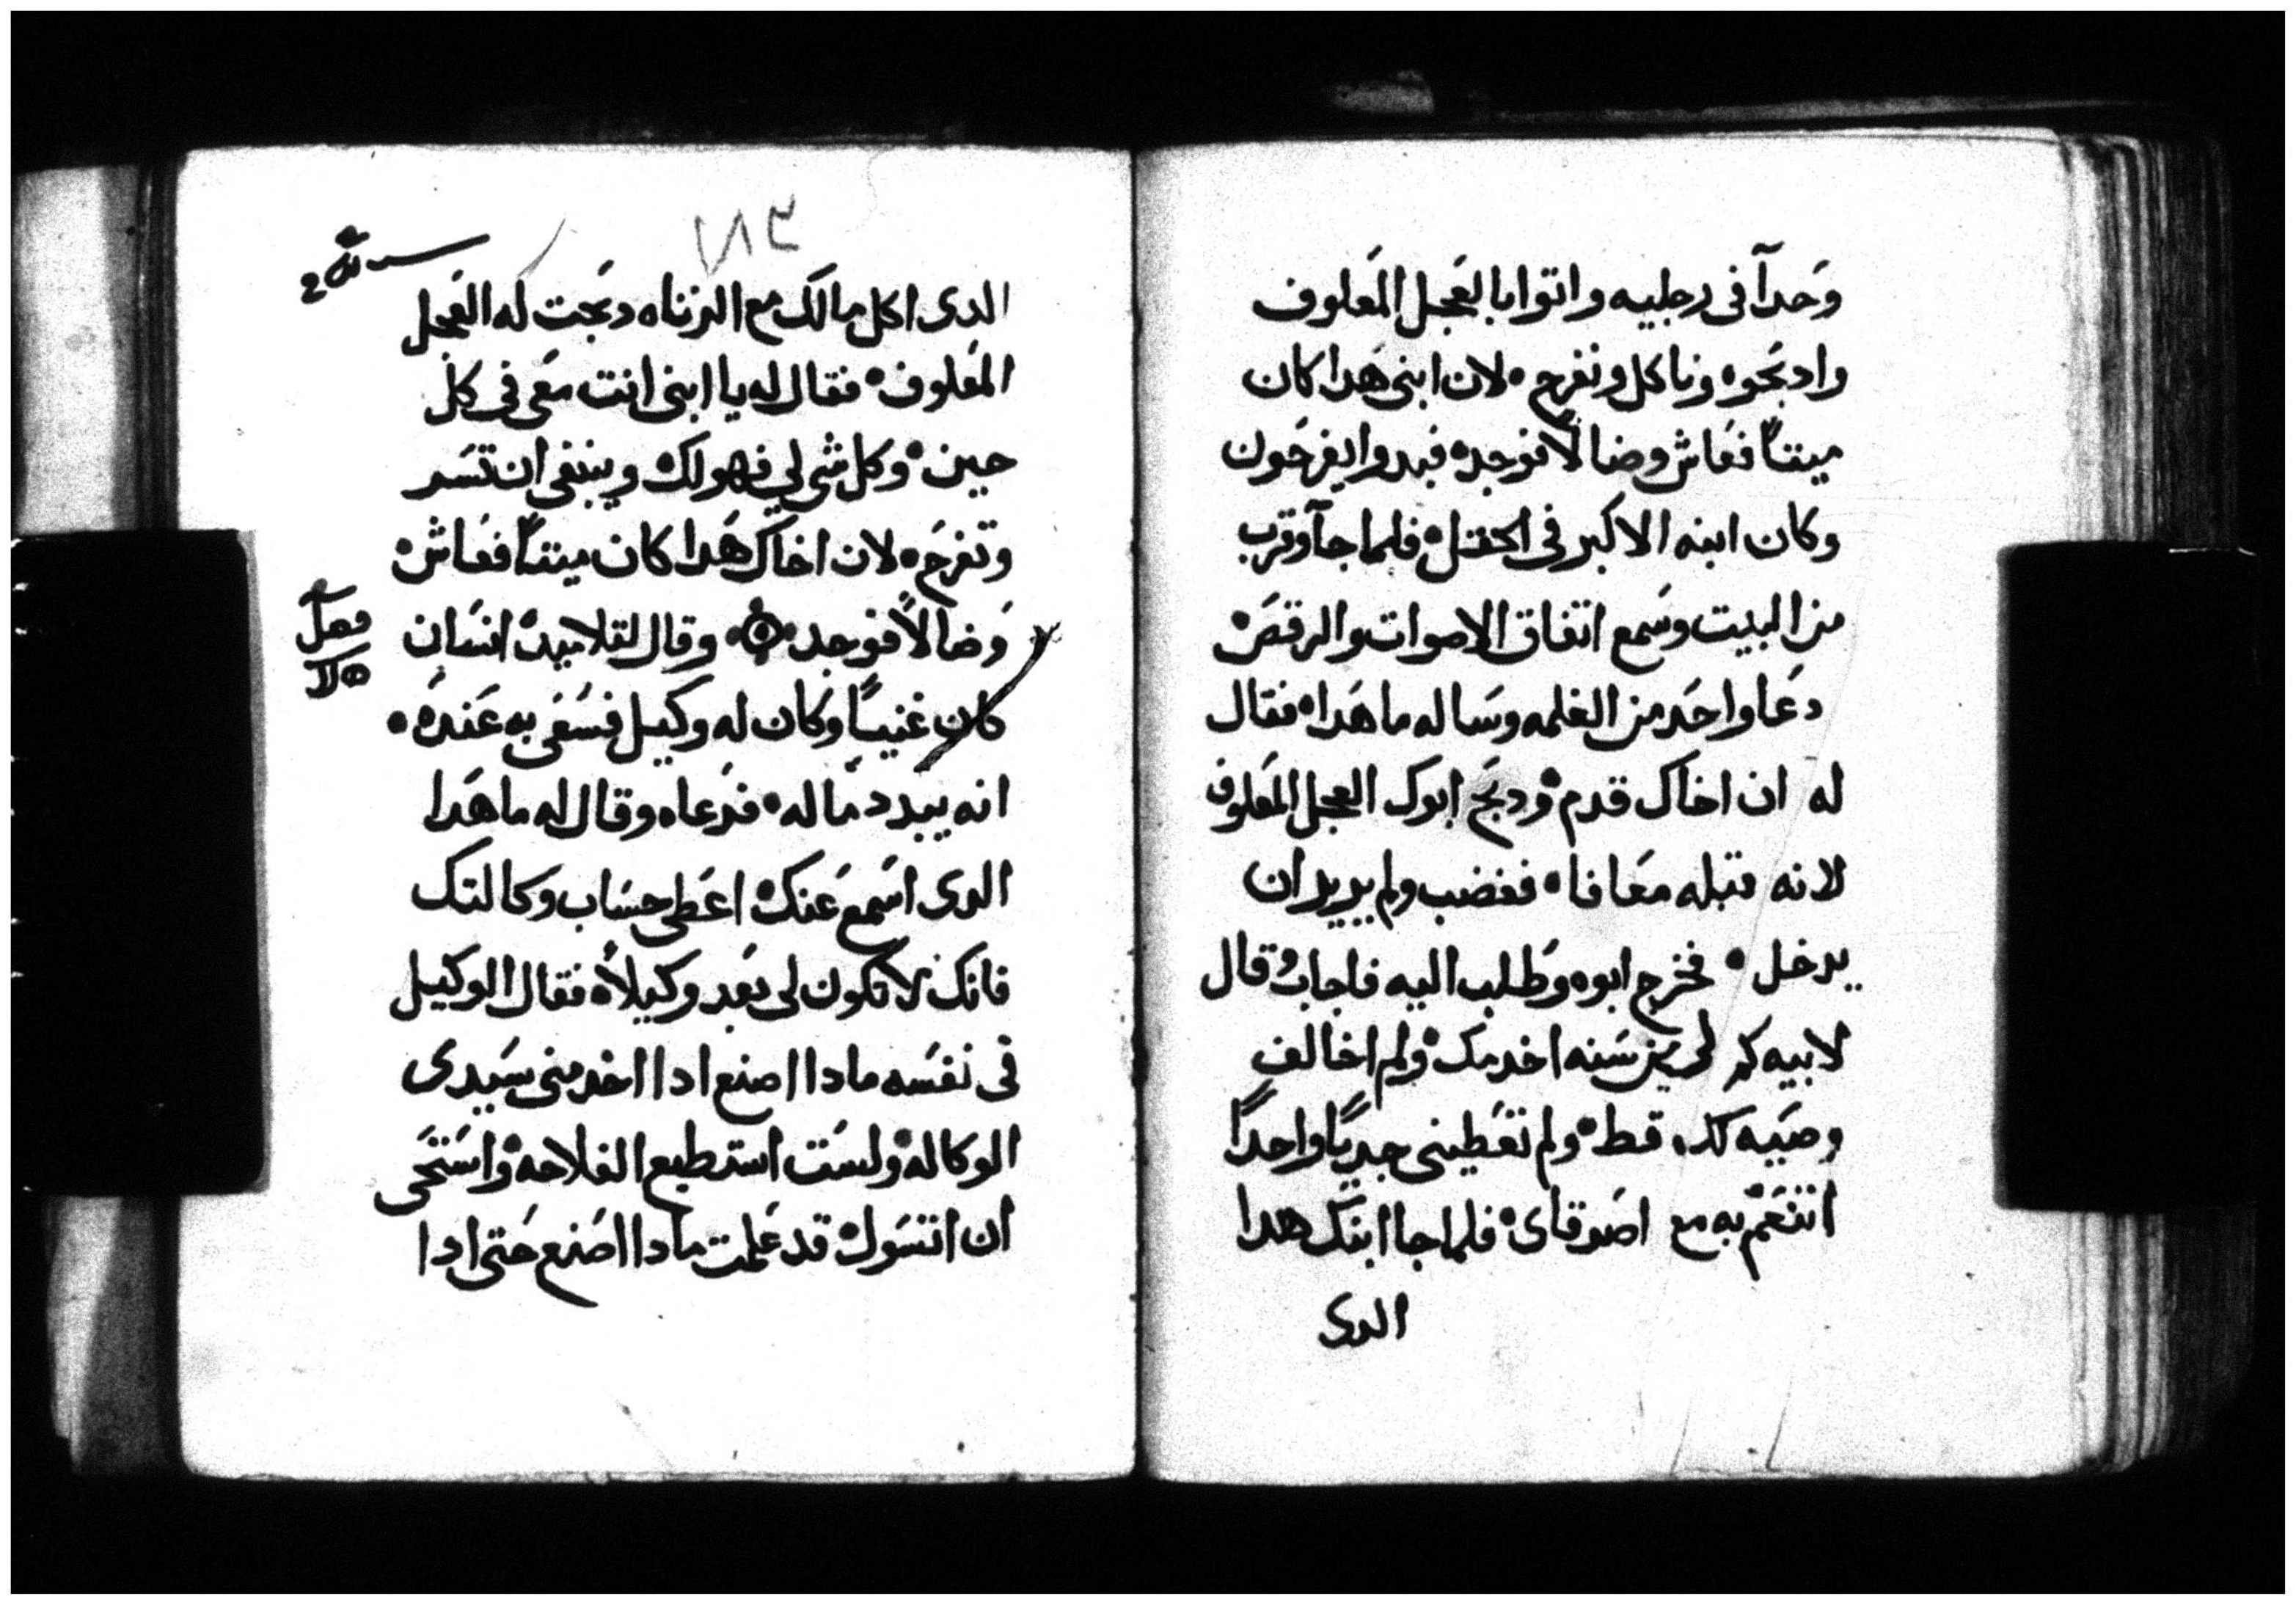 وحدآ في رجليه واتوا بالعجل المعلوف
وادبحوه وناكل ونفرح • لان ابني هدا كان
ميتاً فعاش وضالاً فوجد • فبدوا يفرحون
وكان ابنه الاكبر في الحقل • فلما جآ وقرب
من البيت وسمع اتفاق الاصوات والرقص •
دعا واحد من الغلمه وساله ما هدا • فقال
له ان اخاك قدم • ودبح ابوك العجل المعلوف
لانه قبله معافا • فغضب ولم يريد ان
يدخل • فخرج ابوه وطلب اليه فاجاب وقال
لابيه كم لي من سنه اخدمك • ولم اخالف
وصيه لك قط • ولم تعطيني جدياً واحداً
اتنعم به مع اصدقاى • فلما جا ابنك هدا
الدى
٢٨٣
الدى اكل مالك مع الزناه دبحت له العجل
المعلوف • فقال له يا ابني انت معي في كل
حين • وكل شي لي فهو لك • وينبغي ان تسر
وتفرح • لان اخاك هدا كان ميتاً فعاش •
وضالاً فوجد • وقال لتلاميده انسان
فصل
كان غنيباً وكان له وكيل فسعى به عنده •
انه يبدد ماله • فدعاه وقال له ما هدا
الدى اسمع عنك • اعطي حساب وكالتك
فانك لا تكون لي بعد وكيلاً • فقال الوكيل
في نفسه مادا اصنع ادا اخد مني سيدى
الوكاله • ولست استطيع الفلاحه • واستحى
ان اتسول • قد علمت مادا اصنع حتى ادا